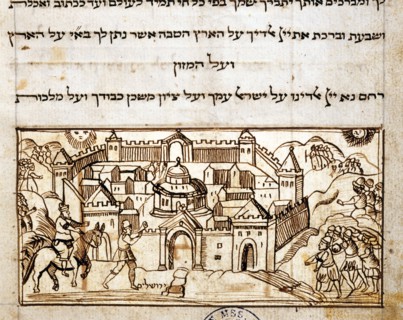 לך ומברכים אותך יתברך שמך בפי כל חי תמיד לעולם ועד ככתוב ואכלת
ושבעת וברכת את ייי אלדיך על הארץ הטבה אשר נתן לך בא״י על הארץ
ועל המזון
רחם נא ייי אלדינו על ישראל עמך ועל ציון משכן כבודך ועל מלכות
ירושלים
MSS